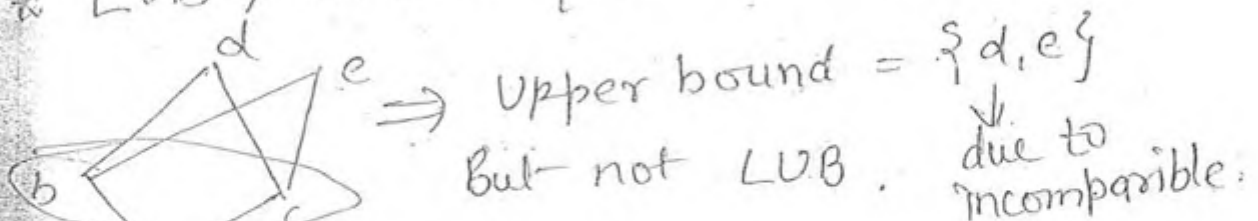 & LUB
d
e
⇒ Upper bound = {d, e}
↓
But not LUB. due to
incomparible.
b
c